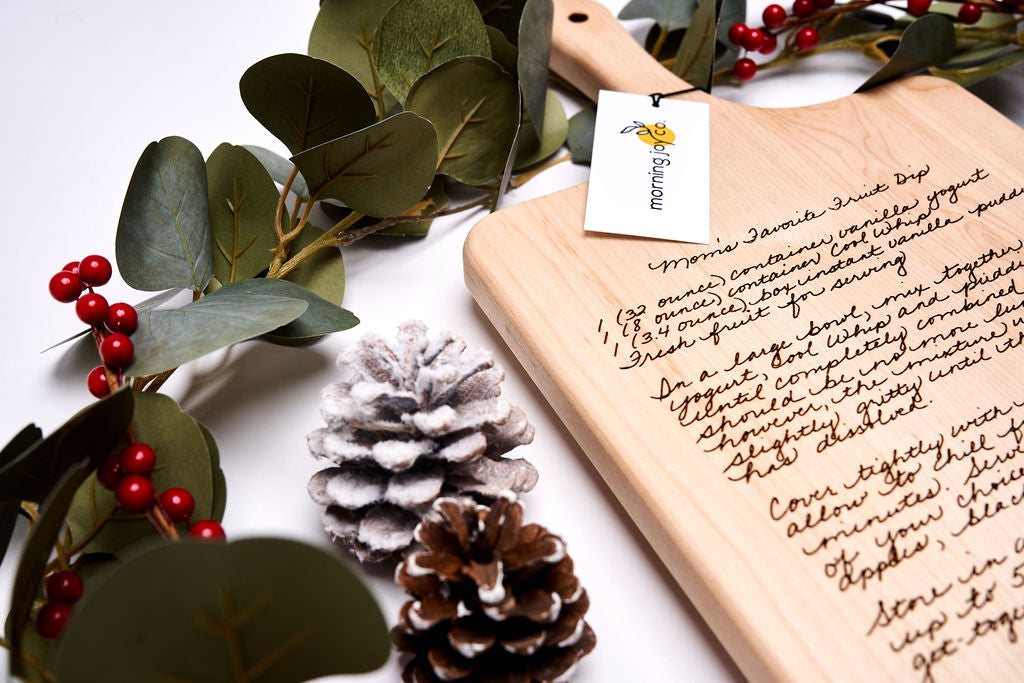 morning joy co.
Mom's Favorite Fruit Dip
1, (32 ounce) container vanilla yogurt
1, (8 ounce) container Cool Whip
1, (3.4 ounce) box instant vanilla pudd
Fresh fruit for serving
In a large bowl, mix together
yogurt, Cool Whip and puddi
until completely combined
should be no more lum
however, the mixture
slightly gritty until th
has dissolved.
Cover tightly with
allow to chill f
minutes. Serv
of your choice
apples, blac
Store in a
up to 5
get-toge